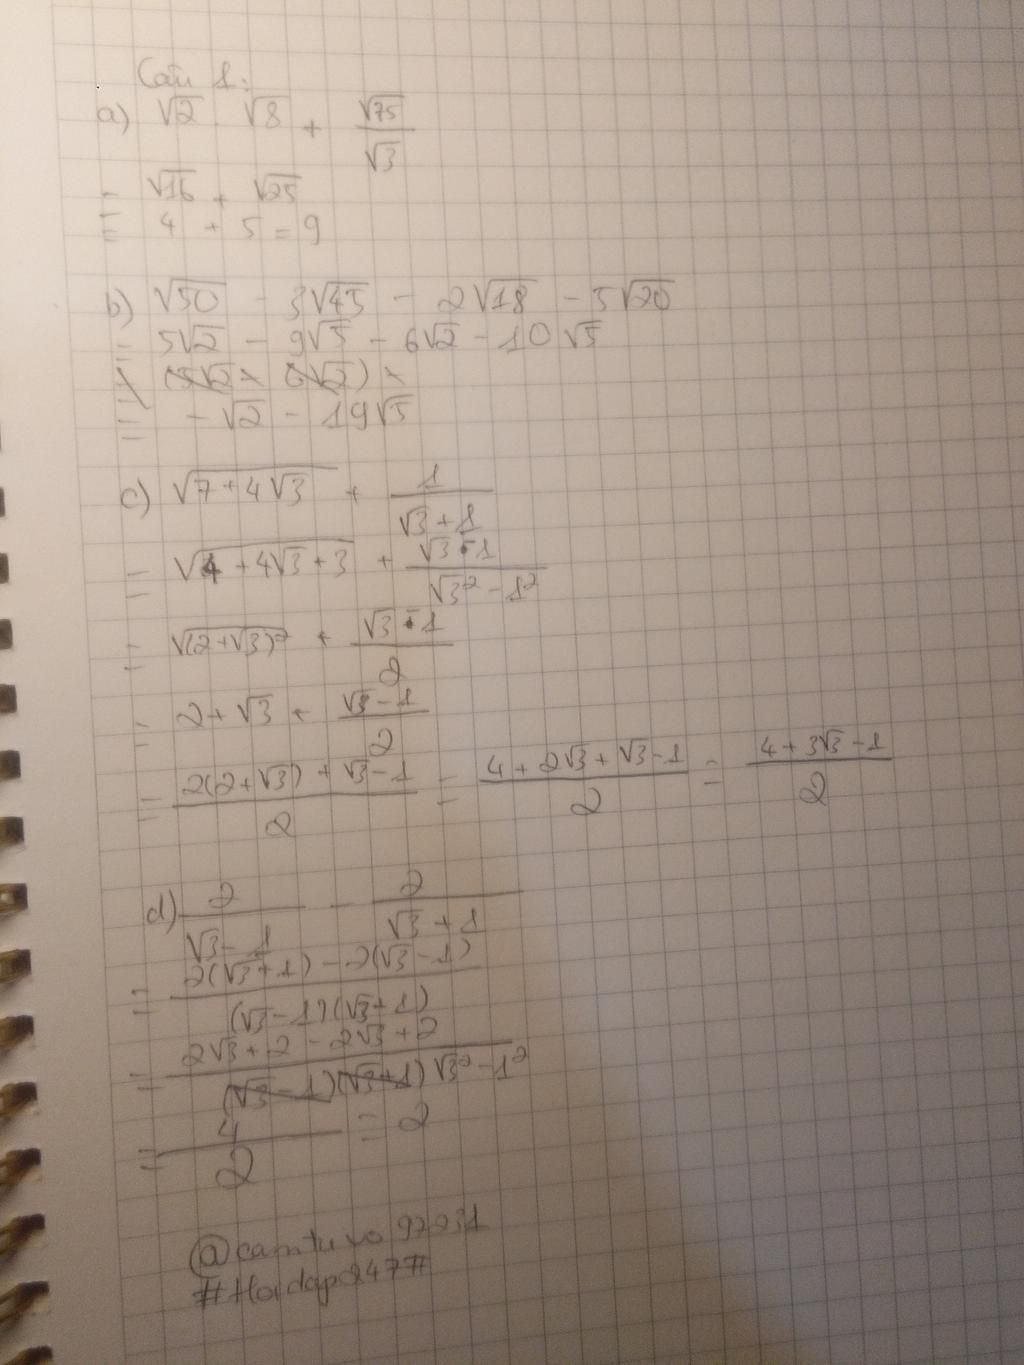 Câu 1:
a) √2 √8 + √75/√3
= √16 + √25
= 4 + 5 = 9
b) √50 - 3√45 - 2√18 - 5√20
= 5√2 - 9√5 - 6√2 - 10√5
= -√2 - 19√5
c) √(7+4√3) + 1/(√3+1)
= √(4+4√3+3) + (√3-1)/(√3² - 1²)
= √(2+√3)² + (√3-1)/2
= 2+√3 + (√3-1)/2
= (2(2+√3) + √3-1)/2 = (4+2√3+√3-1)/2 = (4+3√3-1)/2
d) 2/(√3-1) - 2/(√3+1)
= (2(√3+1) - 2(√3-1))/((√3-1)(√3+1))
= (2√3+2-2√3+2)/(√3² - 1²)
= 4/2 = 2
#Hoidap247#